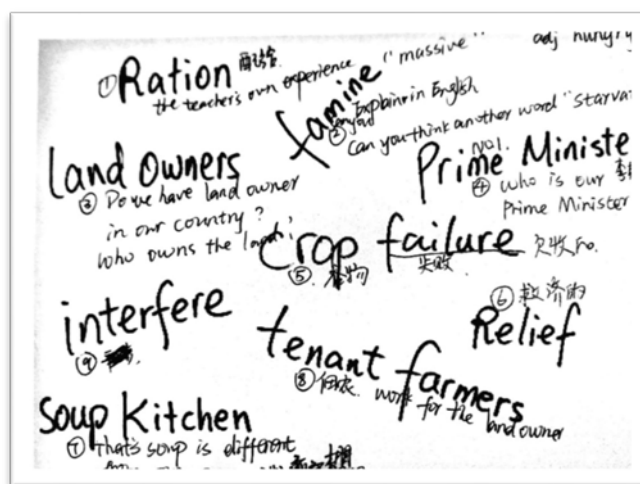 ① Ration 配给
the teacher's own experience "massive"
adj hungry
famine
② Explain in English
can you think another word "starva
land owners
③ Do we have land owner
in our country?
who owns the land?
Prime Ministe
NO1.
④ who is our 李
Prime Minister
crop failure 欠收
⑤ 失败
⑥ 救济的
Relief
interfere
⑨
tenant farmers
⑧ 佃农. work for the land owner
Soup Kitchen
⑦ That's soup is different